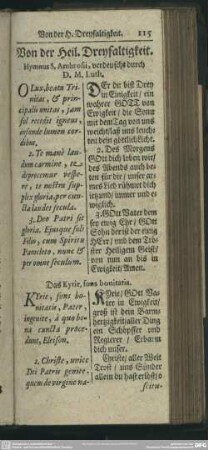 Von der H. Dreyfaltigkeit. 115
Von der Heil. Dreyfaltigkeit.
Hymnus S. Ambrosii, verdeutscht durch
D. M. Luth.
O Lux, beata Tri-
nitas, &
principalis unitas, jam
sol recedit igneus,
infunde lumen cor-
dibus,
2. Te manè lau-
dum carmine, te
deprecemur vespe-
re, te nostra sup-
plex gloria, per cun-
cta laudet secula.
3. Deo Patri sit
gloria, Ejusque soli
Filio, cum Spiritu
Paracleto, nunc &
per omne seculum.
DEr du bist Drey
in Einigkeit/ ein
wahrer GOTT von
Ewigkeit/ die Sonn
mit dem Tag von uns
weicht/ laß uns leuch-
ten dein göttlich Licht.
2. Des Morgens
GOtt dich loben wir/
des Abends auch be-
ten für dir/ unser ar-
mes Lied rühmet dich
itzund/ immer und e-
wiglich.
3. GOtt Vater dem
sey ewig Ehr/ GOtt
Sohn der ist der einig
HErr/ und dem Trö-
ster Heiligen Geist/
von nun an biß in
Ewigkeit/ Amen.
Das Kyrie, fons bonitatis.
KYrie, fons bo-
nitatis, Pater
ingenite, à quo bo-
na cuncta proce-
dunt, Eleison.
2. Christe, unice
Dei Patris genite,
quem de virgine na-
KYrie/ GOtt Va-
ter in Ewigkeit/
groß ist dein Barm-
hertzigkeit/ aller Ding
ein Schöpffer und
Regierer/ Erbarm
dich unser.
Christe/ aller Welt
Trost/ uns Sünder
allein du hast erlöst/